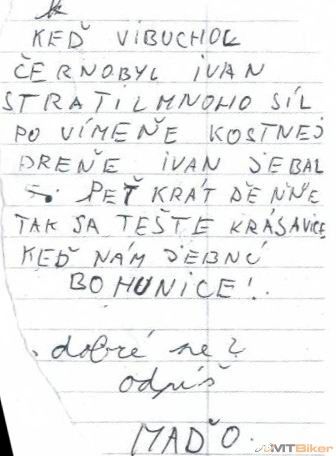 KEĎ VIBUCHOL
ČERNOBYL IVAN
STRATIL MNOHO SÍL
PO VÍMEŇE KOSTNEJ
DREŇE IVAN JEBAL
PEŤ KRÁT DEŇŇE
TAK SA TEŠTE KRÁSAVICE
KEĎ NÁM JEBNÚ
BOHUNICE!
dobré ne?
odpíš
MAĎO.
MTBiker